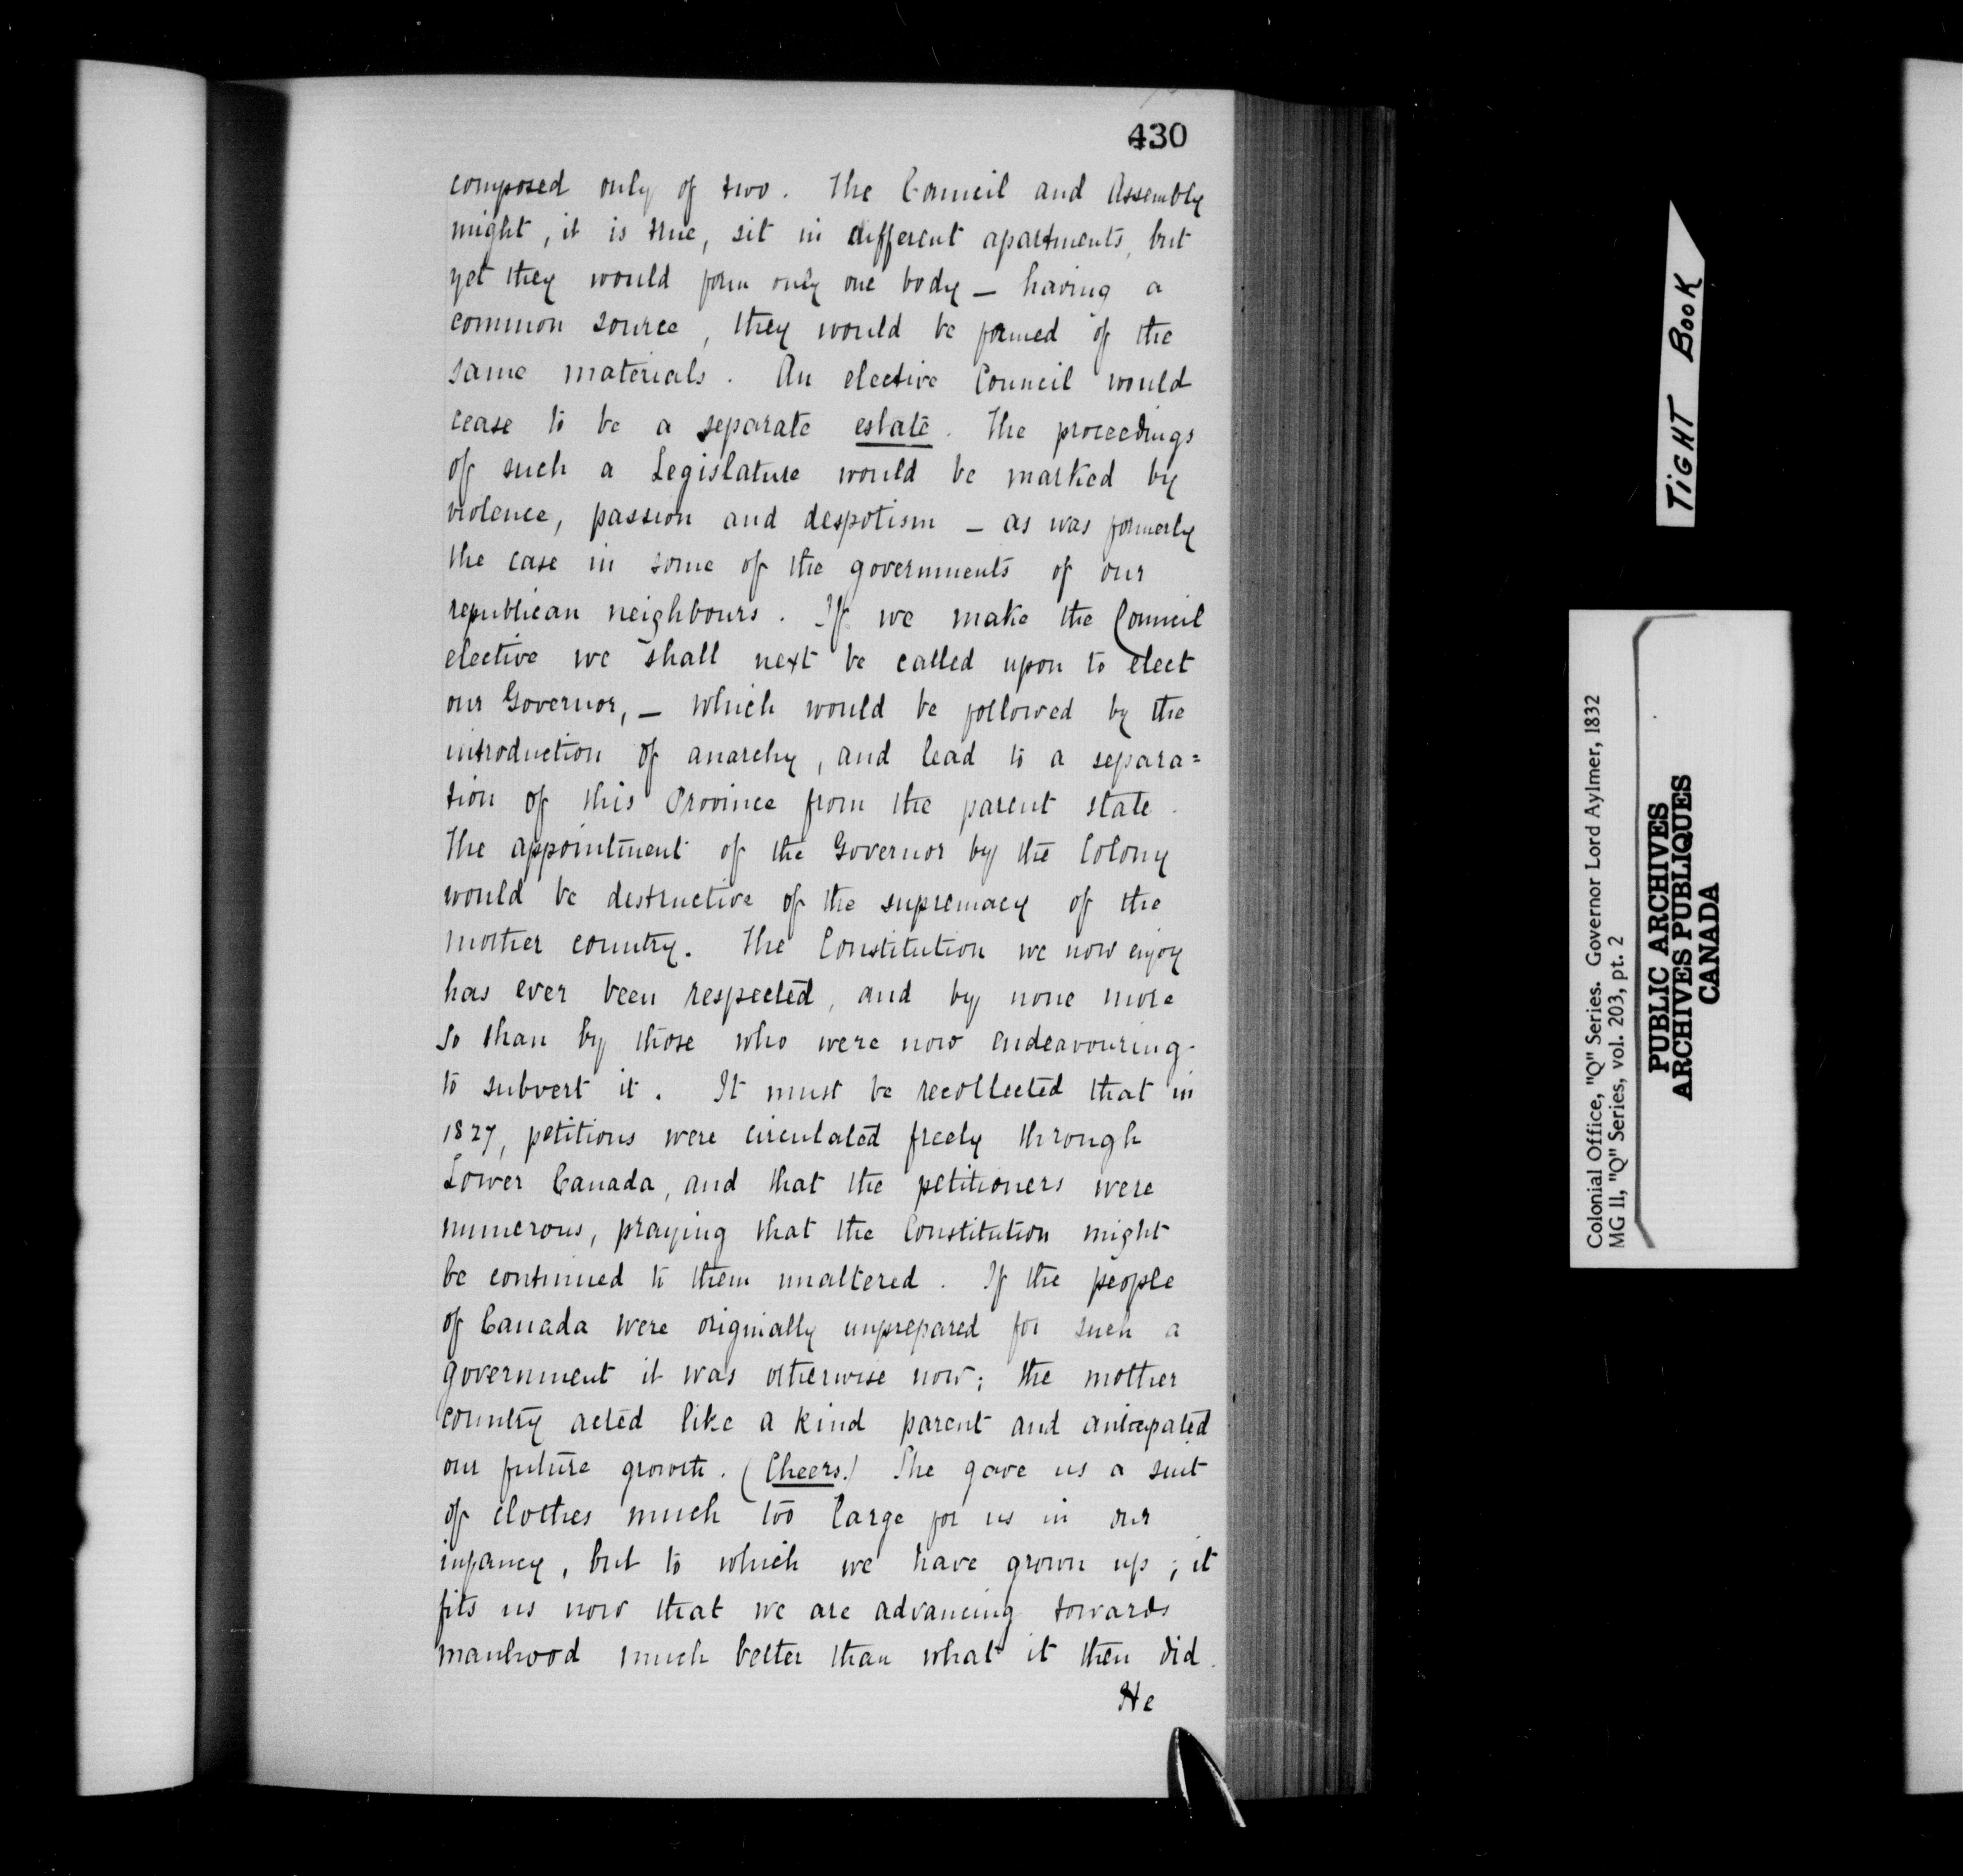 430
composed only of two. The Council and Assembly
might, it is true, sit in different apartments, but
yet they would form only one body — having a
common source, they would be formed of the
same materials. An elective Council would
cease to be a separate estate. The proceedings
of such a Legislature would be marked by
violence, passion and despotism — as was formerly
the case in some of the governments of our
republican neighbours. If we make the Council
elective we shall next be called upon to elect
our Governor, — which would be followed by the
introduction of anarchy, and lead to a separa=
tion of this Province from the parent state.
The appointment of the Governor by the Colony
would be destructive of the supremacy of the
mother country. The Constitution we now enjoy
has ever been respected, and by none more
so than by those who were now endeavouring
to subvert it. It must be recollected that in
1827, petitions were circulated freely through
Lower Canada, and that the petitioners were
numerous, praying that the Constitution might
be continued to them unaltered. If the people
of Canada were originally unprepared for such a
government it was otherwise now; the mother
country acted like a kind parent and anticipated
our future growth. (Cheers.) She gave us a suit
of clothes much too large for us in our
infancy, but to which we have grown up; it
fits us now that we are advancing towards
manhood much better than what it then did.
He
TIGHT BOOK
Colonial Office, "Q" Series. Governor Lord Aylmer, 1832
MG 11, "Q" Series, vol. 203, pt. 2
PUBLIC ARCHIVES
ARCHIVES PUBLIQUES
CANADA